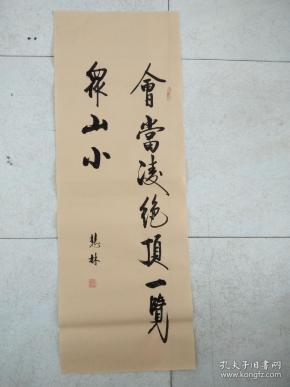 會當凌絶頂一覽
衆山小
慧林
孔夫子旧书网